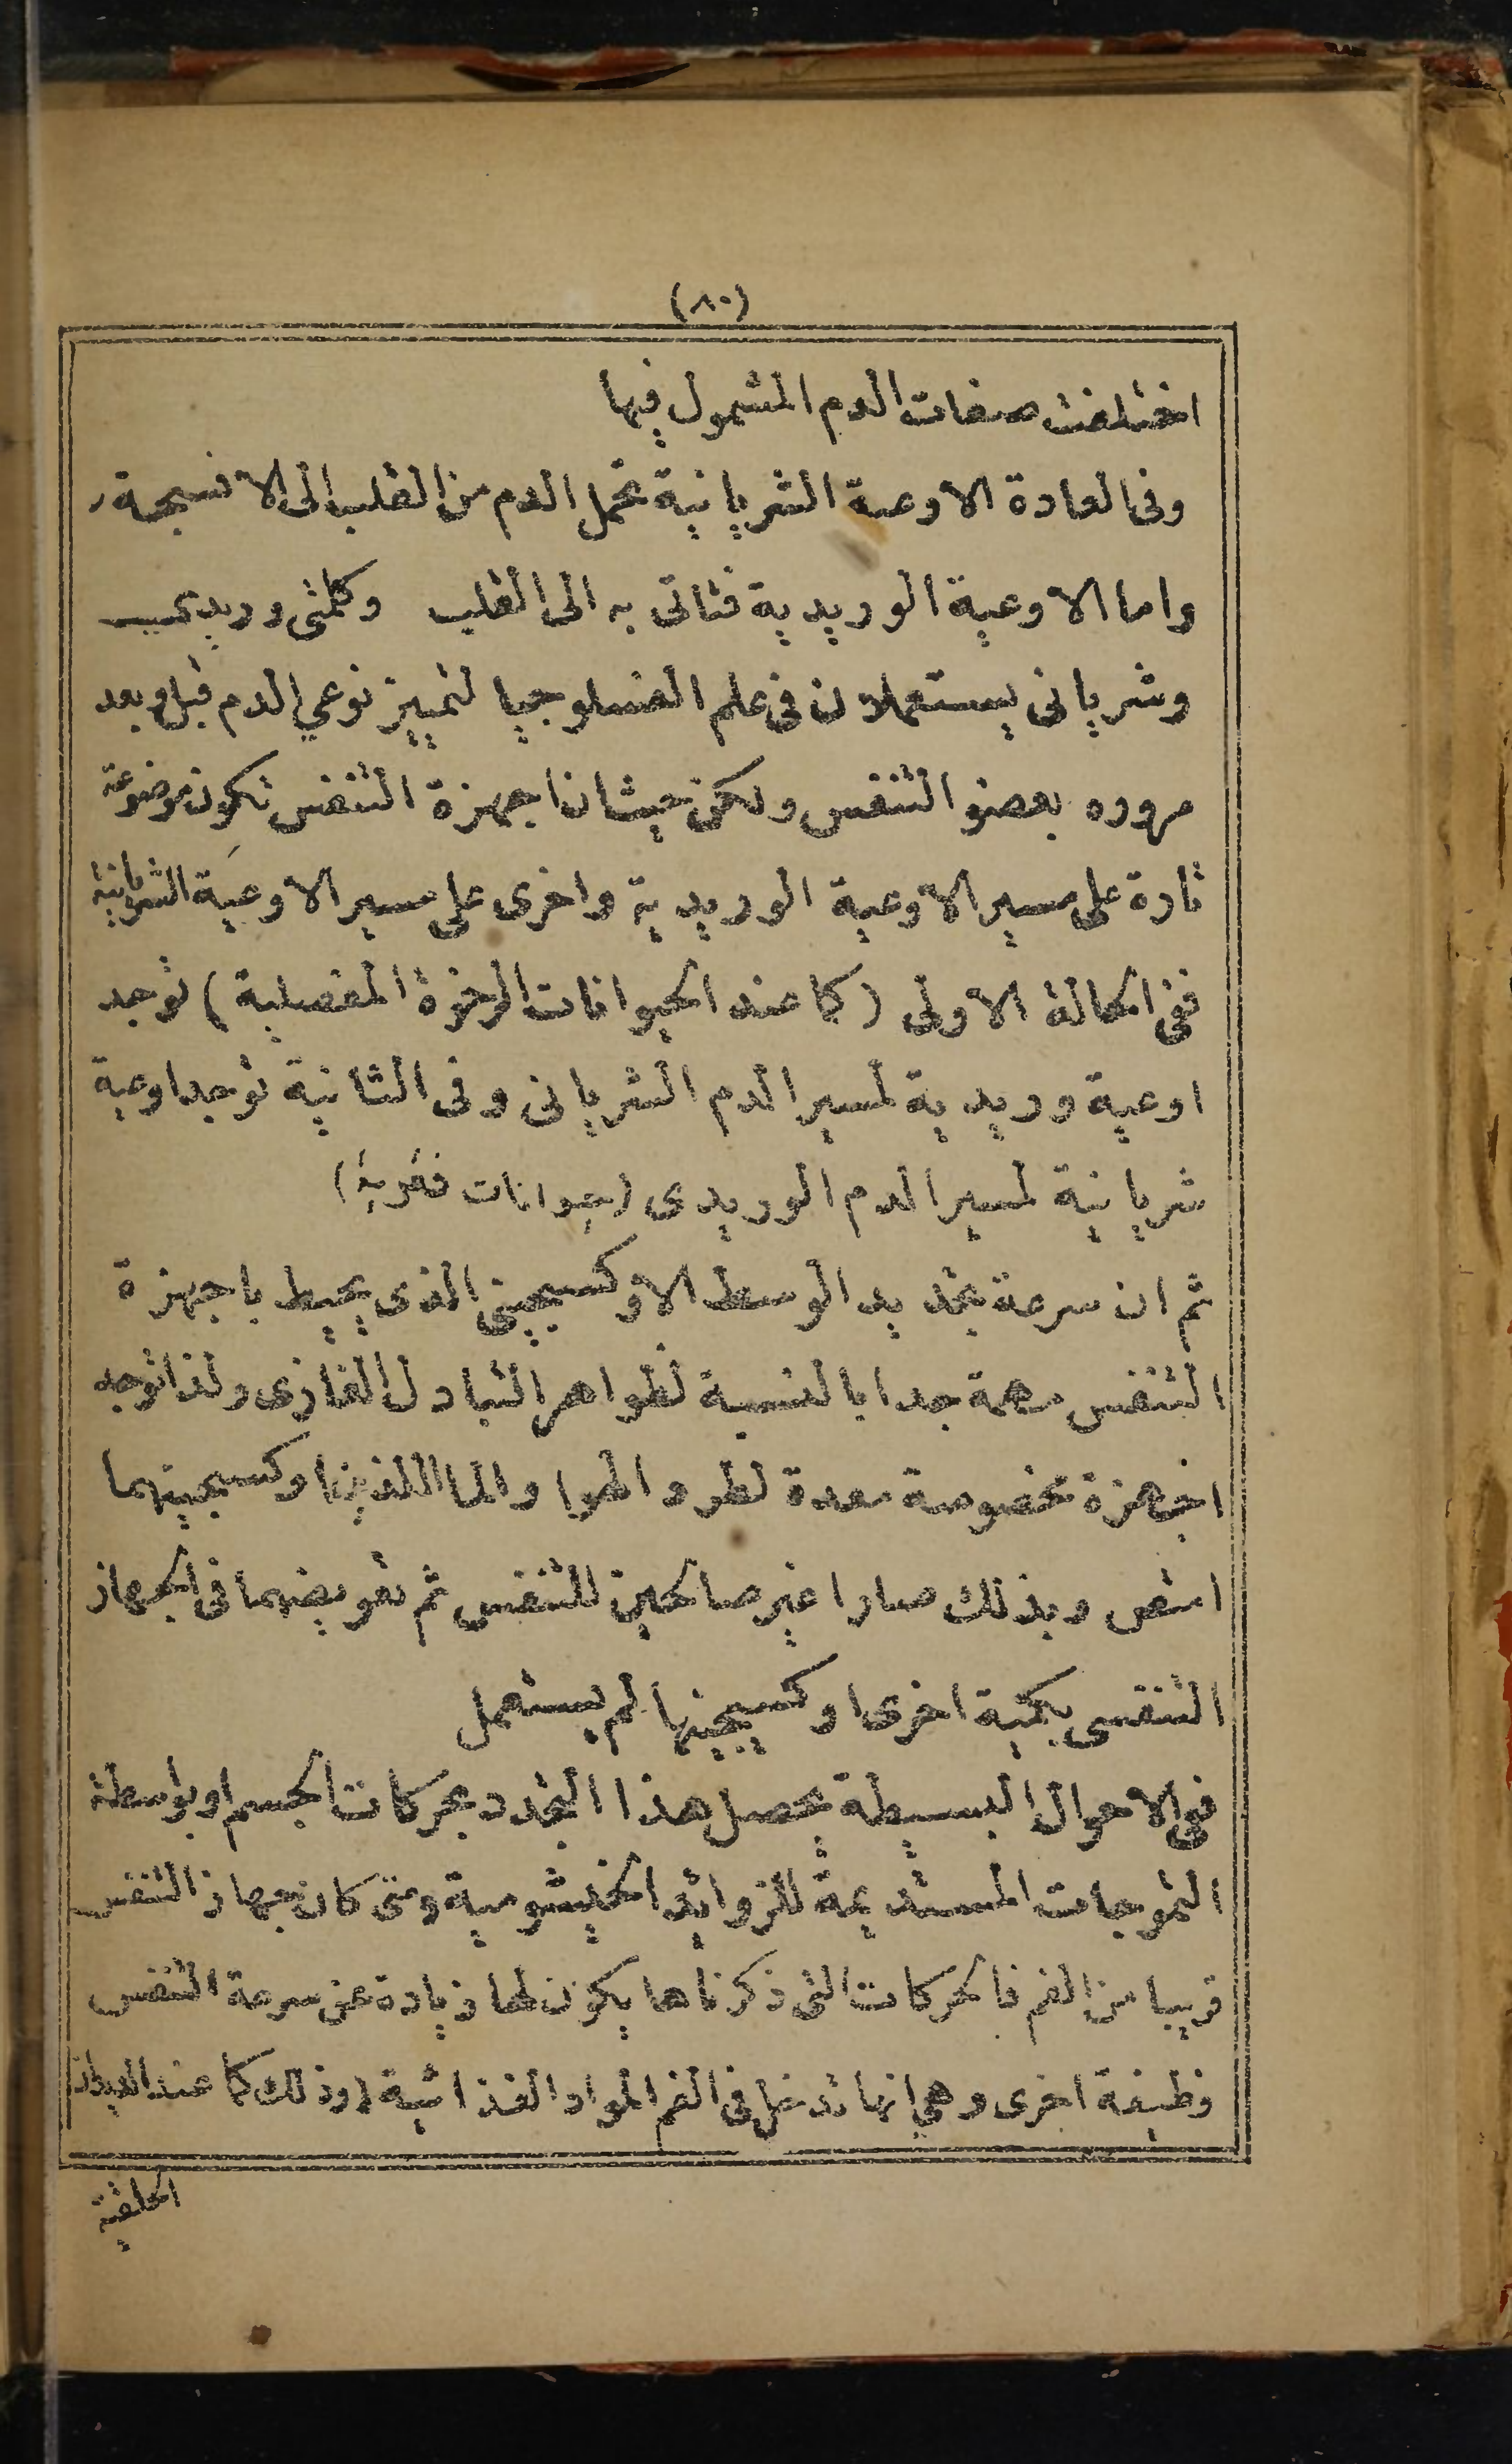 (٨٠)
اختلفت صفات الدم المشمول فيها
وفى العادة الاوعية الشريانية تحمل الدم من القلب الى الانسجة
واما الاوعية الوريدية فتاتى به الى القلب وكلمتى وريدى
وشريانى يستعملان فى علم الفسلوجيا لتمييز نوعي الدم قبل وبعد
مروره بعضو التنفس ولكن حيث ان اجهزة التنفس تكون موضوعة
تارة على مسير الاوعية الوريدية واخرى على مسير الاوعية الشريانية
ففى الحالة الاولى (كما عند الحيوانات الرخوة المفصلية) توجد
اوعية وريدية لمسير الدم الشريانى وفى الثانية توجد اوعية
شريانية لمسير الدم الوريدى (حيوانات فقرية)
ثم ان سرعة تجديد الوسط الاوكسيجينى الذى يحيط باجهزة
التنفس مهمة جدا بالنسبة لظواهر التبادل الغازى ولذا توجد
اجهزة مخصوصة معدة لطرد الهوا والما اللذين اوكسيجينهما
امتص وبذلك صارا غير صالحين للتنفس ثم تعويضهما فى الجهاز
التنفسى بكمية اخرى اوكسيجينها لم يستعمل
ففى الاحوال البسيطة يحصل هذا التجدد بحركات الجسم او بواسطة
التموجات المستديمة للزوائد الخيشومية ومتى كان جهاز التنفس
قريبا من الفم فالحركات التى ذكرناها يكون لها زيادة عن سرعة التنفس
وظيفة اخرى وهي انها تدخل فى الفم المواد الغذائية (وذلك كما عند الديدان
الحلقية